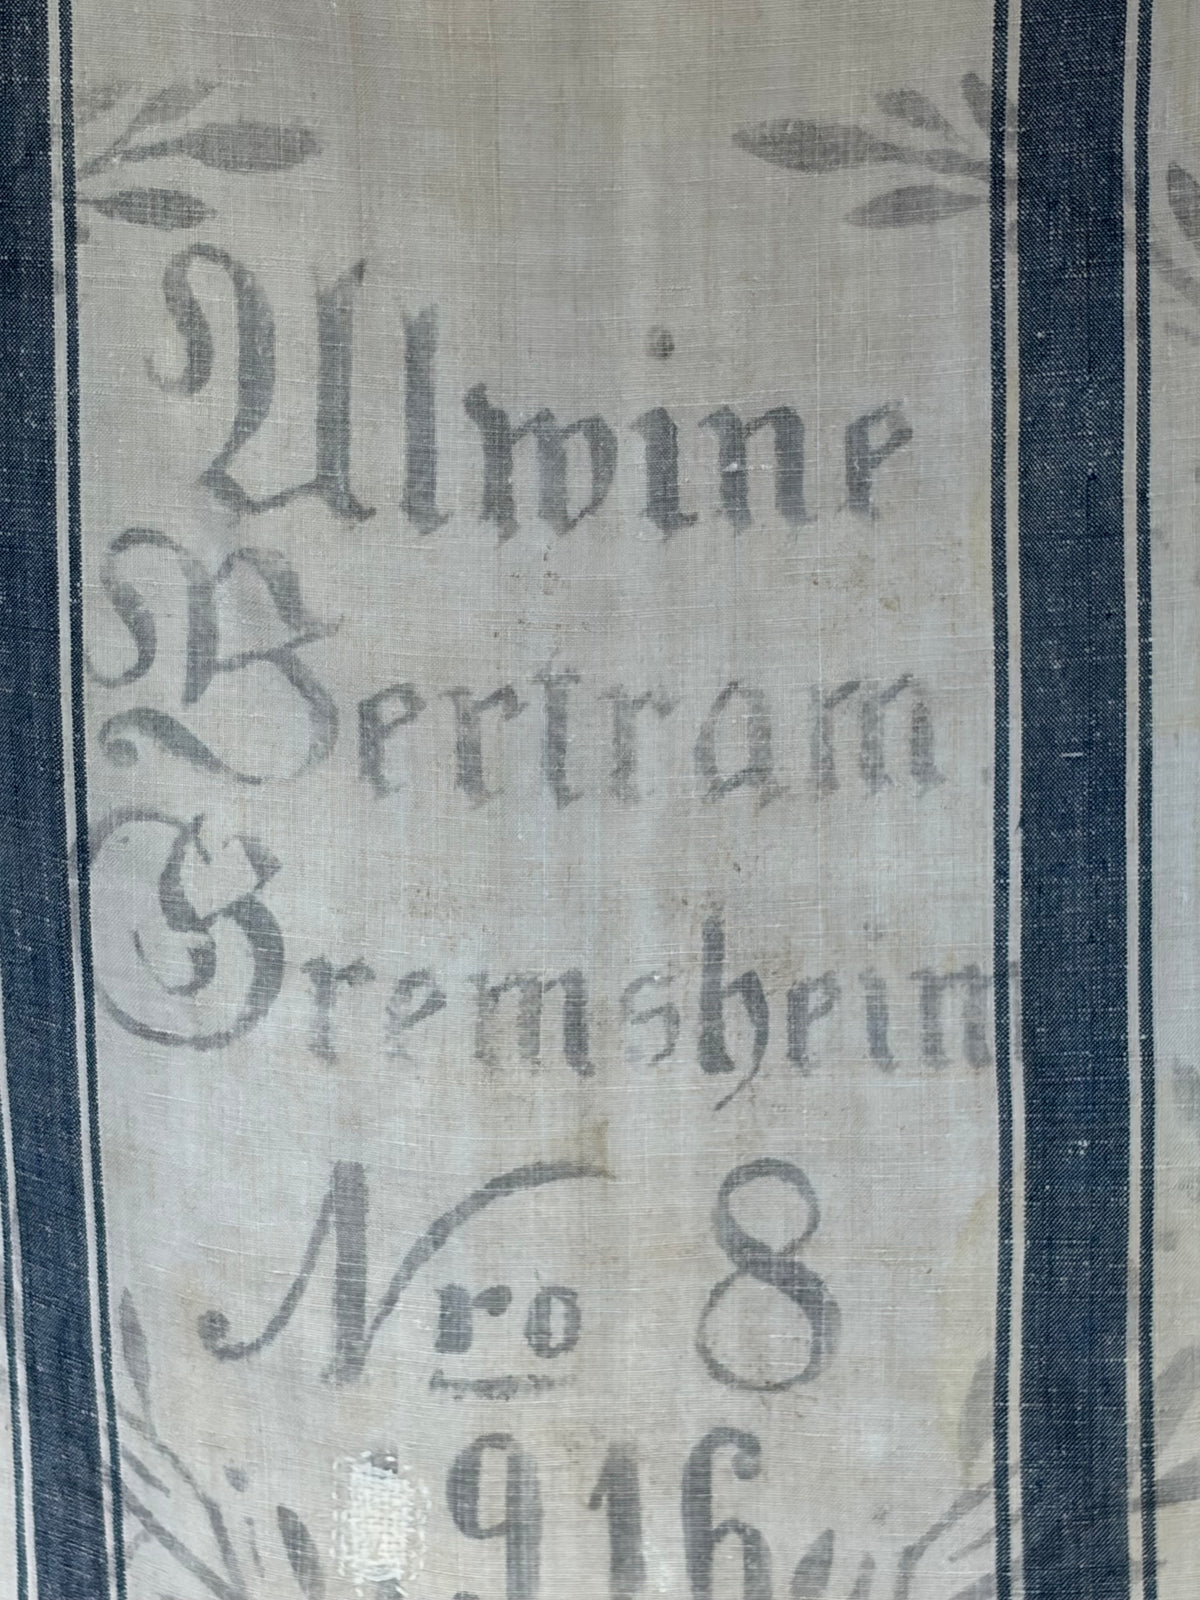 Alwine
Bertram
Gremsheim
Nro 8
1916